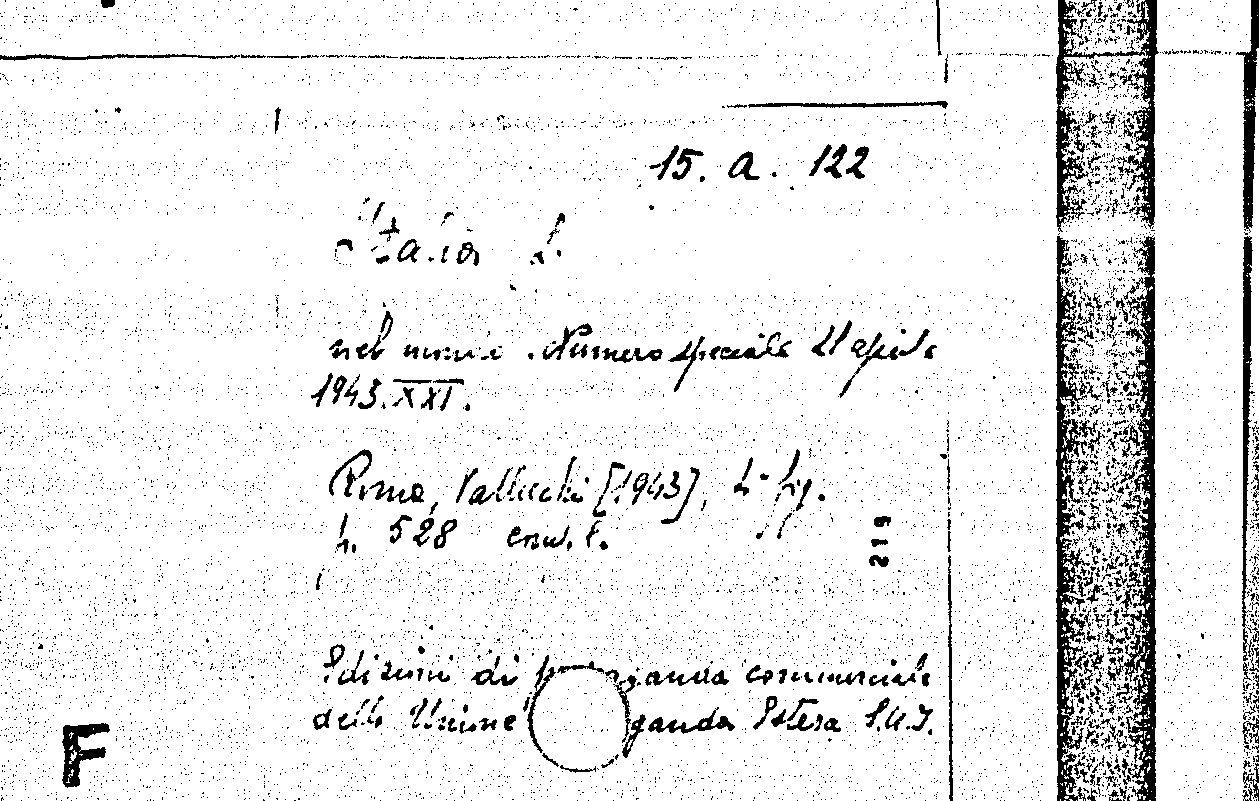 15. a. 122
Italia L.
nel mondo. Numero speciale 21 aprile
1943.XXI.
Roma, Vallecchi [1943], 4° fig.
p. 528 con t.
219
Edizioni di propaganda commerciale
dello Unione ganda Estera S.A.I.
F